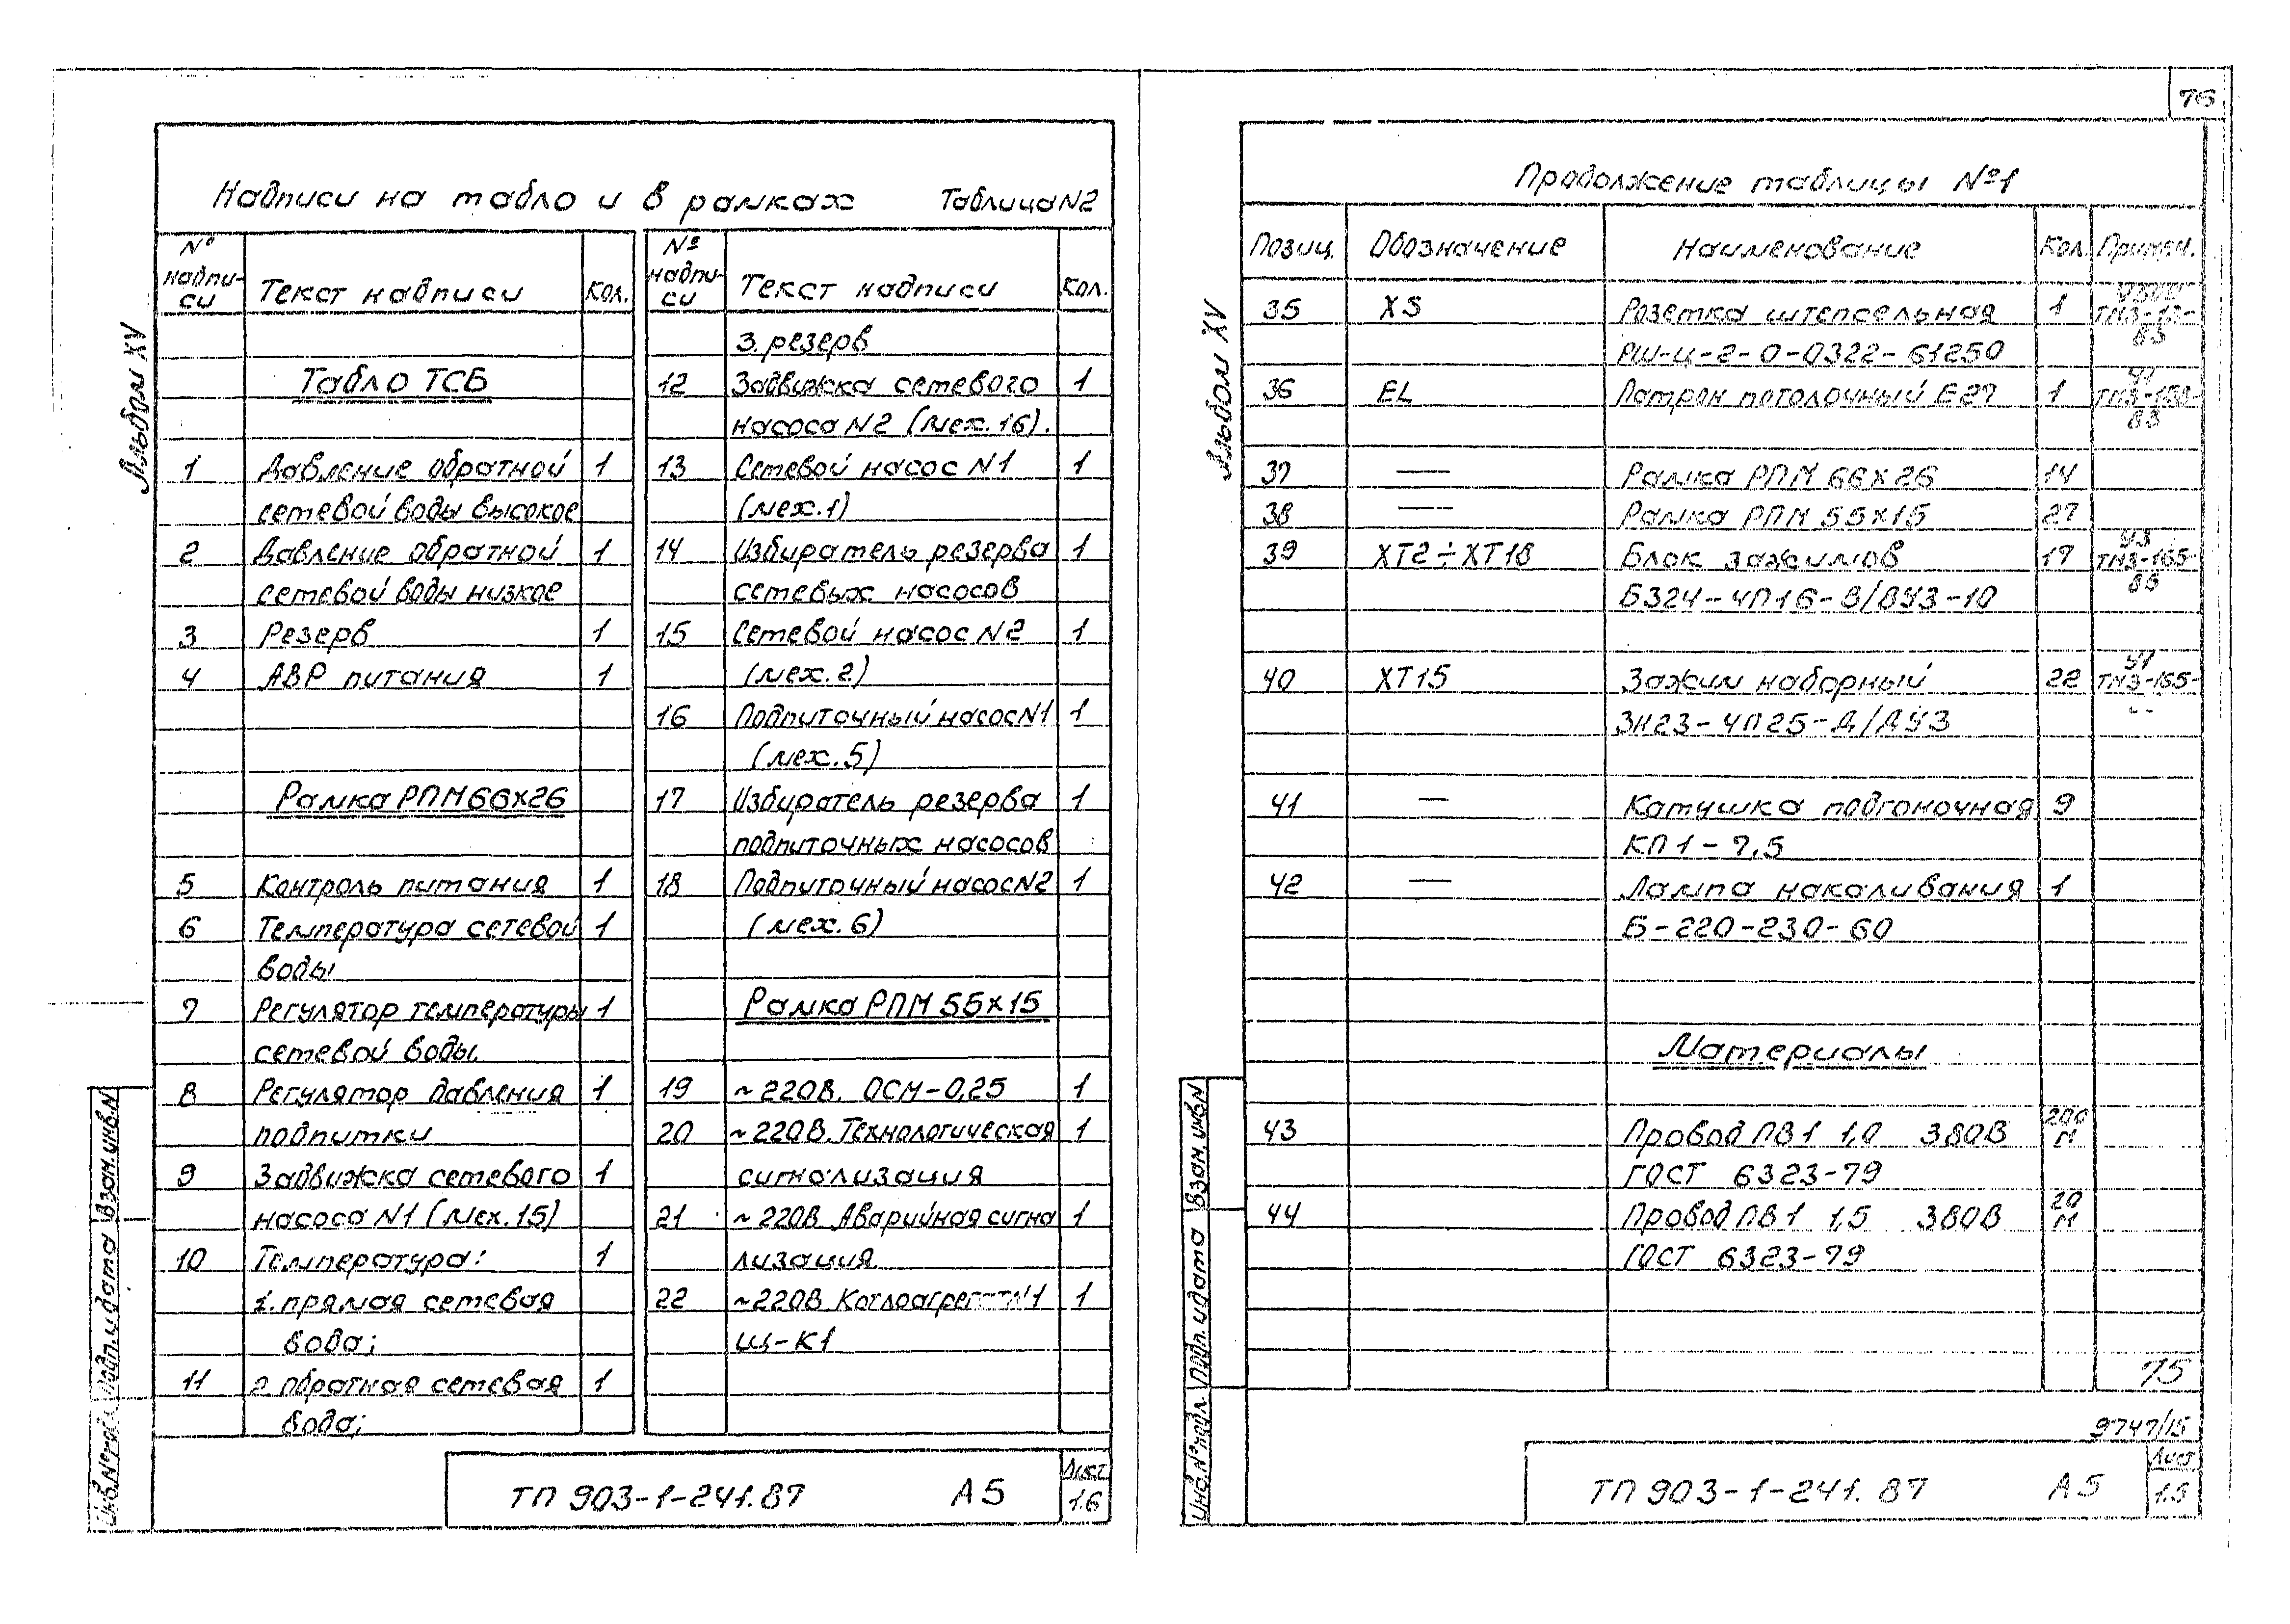 76
Альбом XV
Надписи на табло и в рамках Таблица N2
№ надпи-си Текст надписи Кол. № надпи-си Текст надписи Кол.
Табло ТСБ
1 Давление обратной 1
сетевой воды высокое
2 Давление обратной 1
сетевой воды низкое
3 Резерв 1
4 АВР питания 1
Рамка РПМ 66×26
5 Контроль питания 1
6 Температура сетевой 1
воды
7 Регулятор температуры 1
сетевой воды
8 Регулятор давления 1
подпитки
9 Задвижка сетевого 1
насоса N1 (мех.15)
10 Температура: 1
1. прямая сетевая
вода;
11 2. обратная сетевая 1
вода;
3. резерв
12 Задвижка сетевого 1
насоса N2 (мех.16).
13 Сетевой насос N1 1
(мех.1)
14 Избиратель резерва 1
сетевых насосов
15 Сетевой насос N2 1
(мех.2)
16 Подпиточный насос N1 1
(мех.5)
17 Избиратель резерва 1
подпиточных насосов
18 Подпиточный насос N2 1
(мех.6)
Рамка РПМ 55×15
19 ~220В. ОСМ-0,25 1
20 ~220В. Технологическая 1
сигнализация
21 ~220В Аварийная сигна 1
лизация
22 ~220В Котлоагрегат N1 1
Щ-К1
Инв.№подл. Подп.и дата Взам.инв.N
ТП 903-1-241.87 А5
Лист
1.6
Альбом XV
Продолжение таблицы №1
Позиц. Обозначение Наименование Кол. Примеч.
35 XS Розетка штепсельная 1
РШ-Ц-2-0-0322-61250
36 EL Патрон потолочный Е27 1
37 — Рамка РПМ 66×26 14
38 — Рамка РПМ 55×15 27
39 ХТ2÷ХТ18 Блок зажимов 17 У3 ТМ3-165-83
БЗ24-4П16-В/ВУ3-10
40 ХТ15 Зажим наборный 22 У1 ТМ3-165-
ЗН23-4П25-Д/ДУ3
41 — Катушка подгоночная 9
КП1-7,5
42 — Лампа накаливания 1
Б-220-230-60
Материалы
43 Провод ПВ1 1,0 380В 200 м
ГОСТ 6323-79
44 Провод ПВ1 1,5 380В 20 м
ГОСТ 6323-79
75
9747/15
Инв.№подл. Подп.и дата Взам.инв.N
ТП 903-1-241.87 А5
Лист
1.5